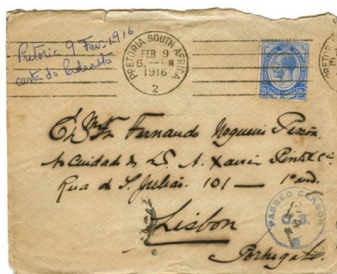 Pretoria 9 Fev. 1916
carta do Padrasto
PRETORIA. SOUTH AFRICA
FEB 9
6
1916
2
Fernando Nogueira Pessôa
Ao Cuidado de A. Xavier Pinto & Cª
Rua de S. Julião. 101 — 1º and.
Lisbon
Portugal.
PASSED CENSOR